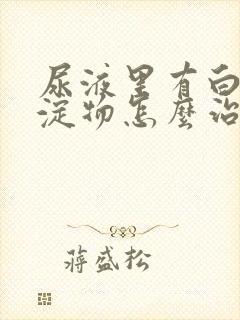 尿液里有白
淀物怎麼治
蔣盛松